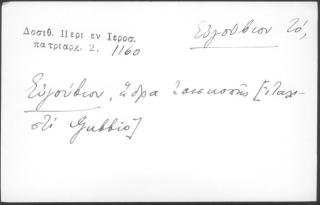 Δοσιθ. Περι εν Ιεροσ.
πατριαρχ. 2. 1160
Εὐγούβιον τό,
Εὐγούβιον, ἕδρα ἐπισκοπῆς [ἰταλι-
στί Gubbio]